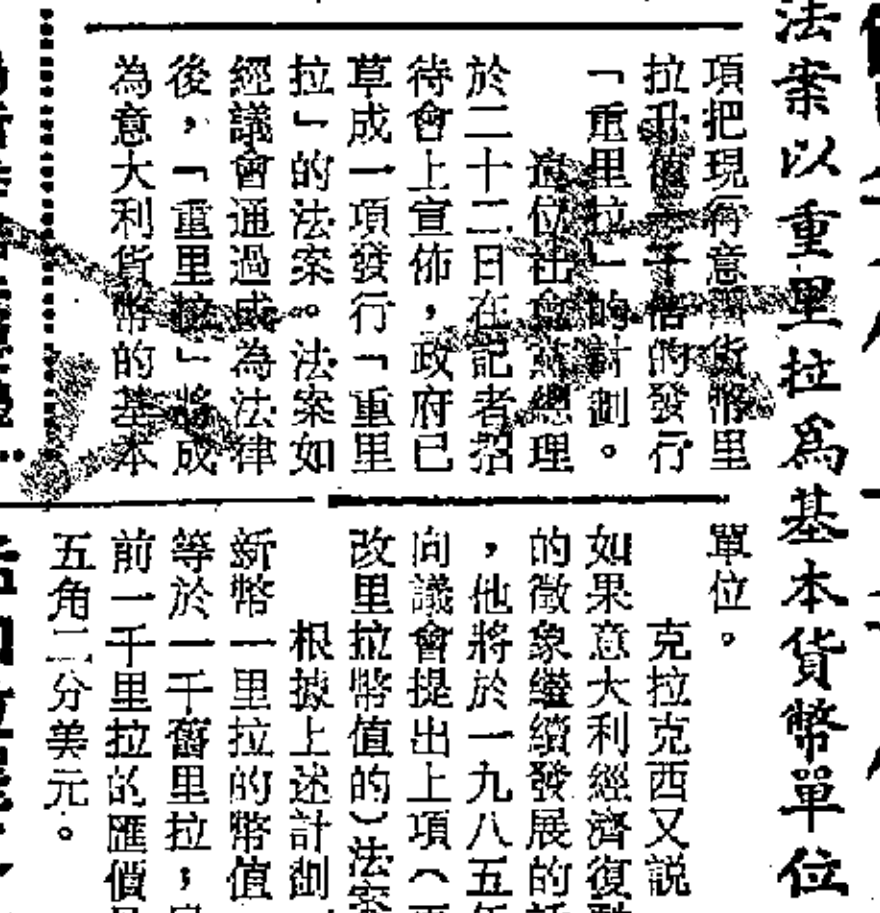 法案以重里拉爲基本貨幣單位
項把現存意幣貨幣里
拉升值一千倍的發行
「重里拉」的計劃。
這位社會黨總理
於二十二日在記者招
待會上宣佈，政府已
草成一項發行「重里
拉」的法案。法案如
經議會通過成為法律
後，「重里拉」將成
為意大利貨幣的基本
單位。
克拉克西又説
如果意大利經濟復
的徵象繼續發展的話
，他將於一九八五年
向議會提出上項（更
改里拉幣值的）法案
根據上述計劃，
新幣一里拉的幣值
等於一千舊里拉，
前一千里拉的匯價
五角二分美元。